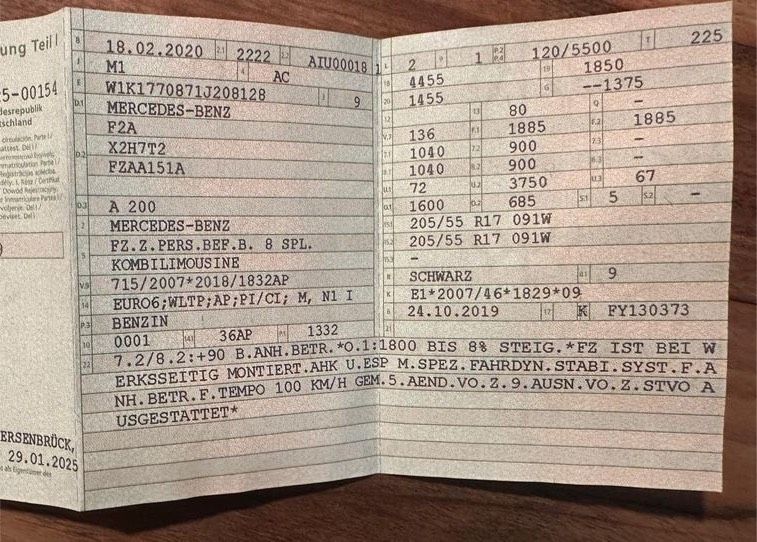 ung Teil I
5-00154
desrepublik
tschland
ERSENBRÜCK,
29.01.2025
B 18.02.2020 2.1 2222 2.2 AIU00018 1
J M1 4 AC
E W1K1770871J208128 3 9
D.1 MERCEDES-BENZ
F2A
D.2 X2H7T2
FZAA151A
D.3 A 200
2 MERCEDES-BENZ
5 FZ.Z.PERS.BEF.B. 8 SPL.
KOMBILIMOUSINE
V.9 715/2007*2018/1832AP
14 EURO6;WLTP;AP;PI/CI; M, N1 I
P.3 BENZIN
10 0001 14.1 36AP P.1 1332
L 2 9 1 P.2 P.4 120/5500 T 225
18 4455 19 1850
20 1455 G --1375
12 - 13 80 Q -
V.7 136 F.1 1885 F.2 1885
7.1 1040 7.2 900 7.3 -
8.1 1040 8.2 900 8.3 -
U.1 72 U.2 3750 U.3 67
O.1 1600 O.2 685 S.1 5 S.2 -
15.1 205/55 R17 091W
15.2 205/55 R17 091W
15.3 -
R SCHWARZ 11 9
K E1*2007/46*1829*09
6 24.10.2019 17 K 16 FY130373
21
22 7.2/8.2:+90 B.ANH.BETR.*O.1:1800 BIS 8% STEIG.*FZ IST BEI W
ERKSSEITIG MONTIERT.AHK U.ESP M.SPEZ.FAHRDYN.STABI.SYST.F.A
NH.BETR.F.TEMPO 100 KM/H GEM.5.AEND.VO.Z.9.AUSN.VO.Z.STVO A
USGESTATTET*